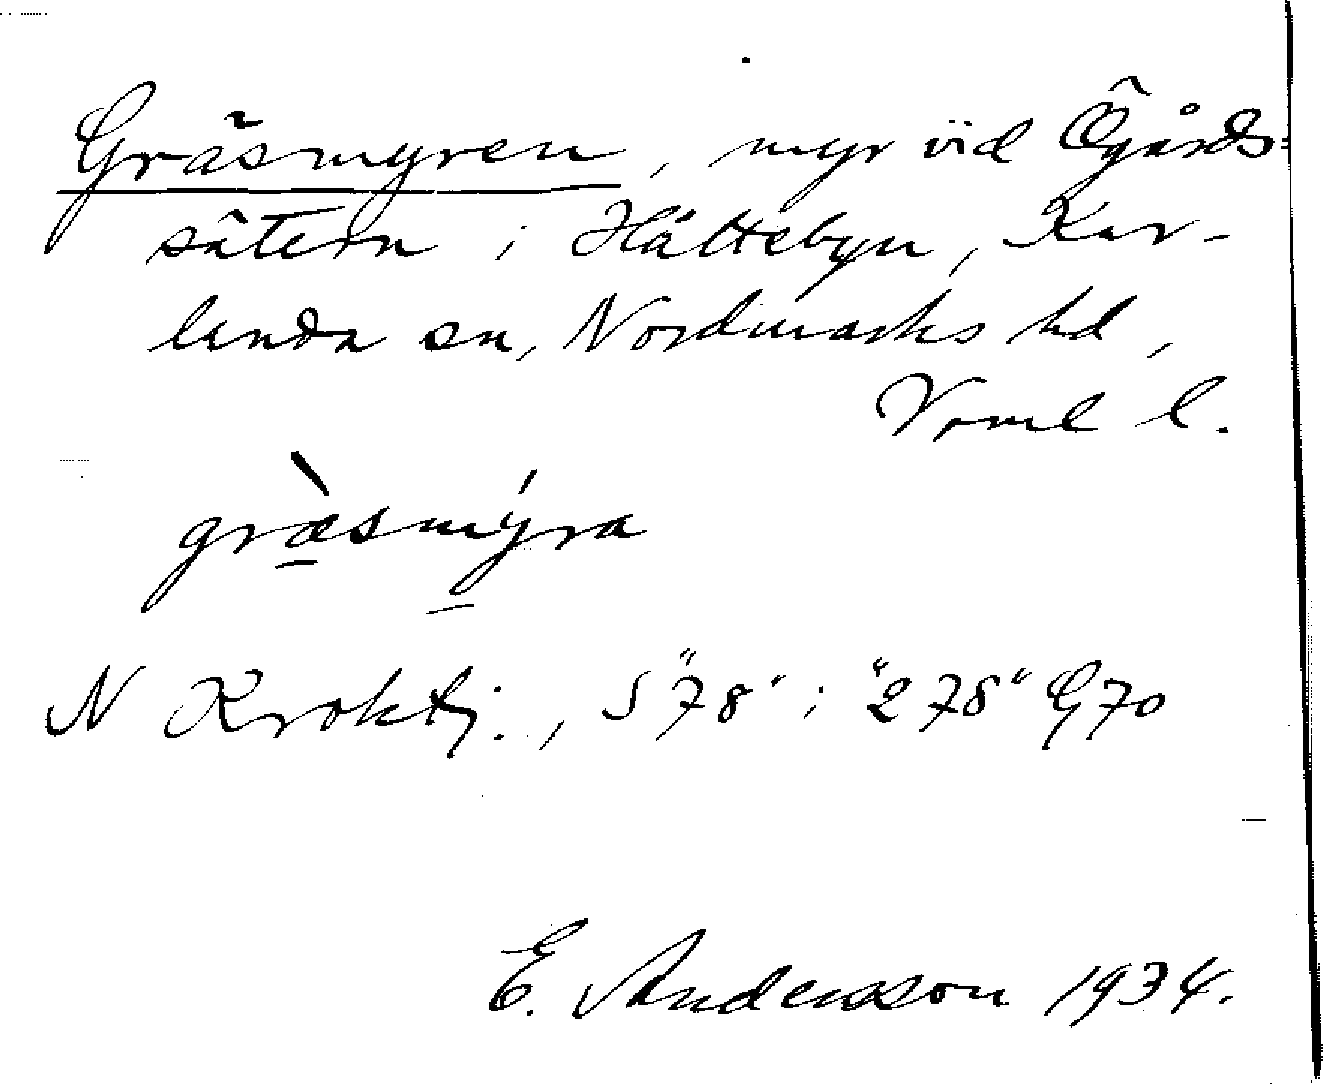 Gräsmyren, myr vid Ögårds-
sätern i Hättebyn, Kar-
landa sn, Nordmarks hd,
Vrml l.
græsmýra
N Kroktj., S "78" i "278" G70
E. Andersson 1934.